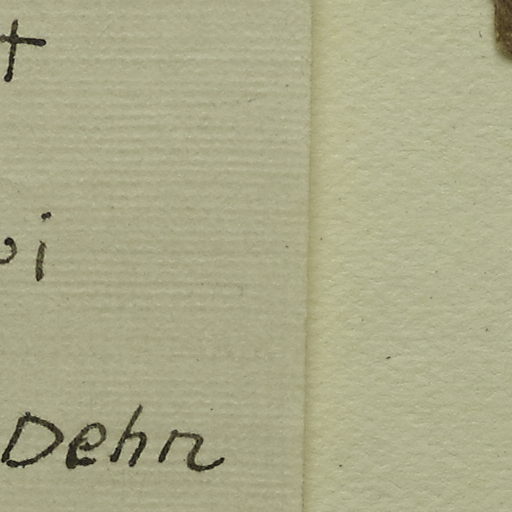 t
i
Dehn